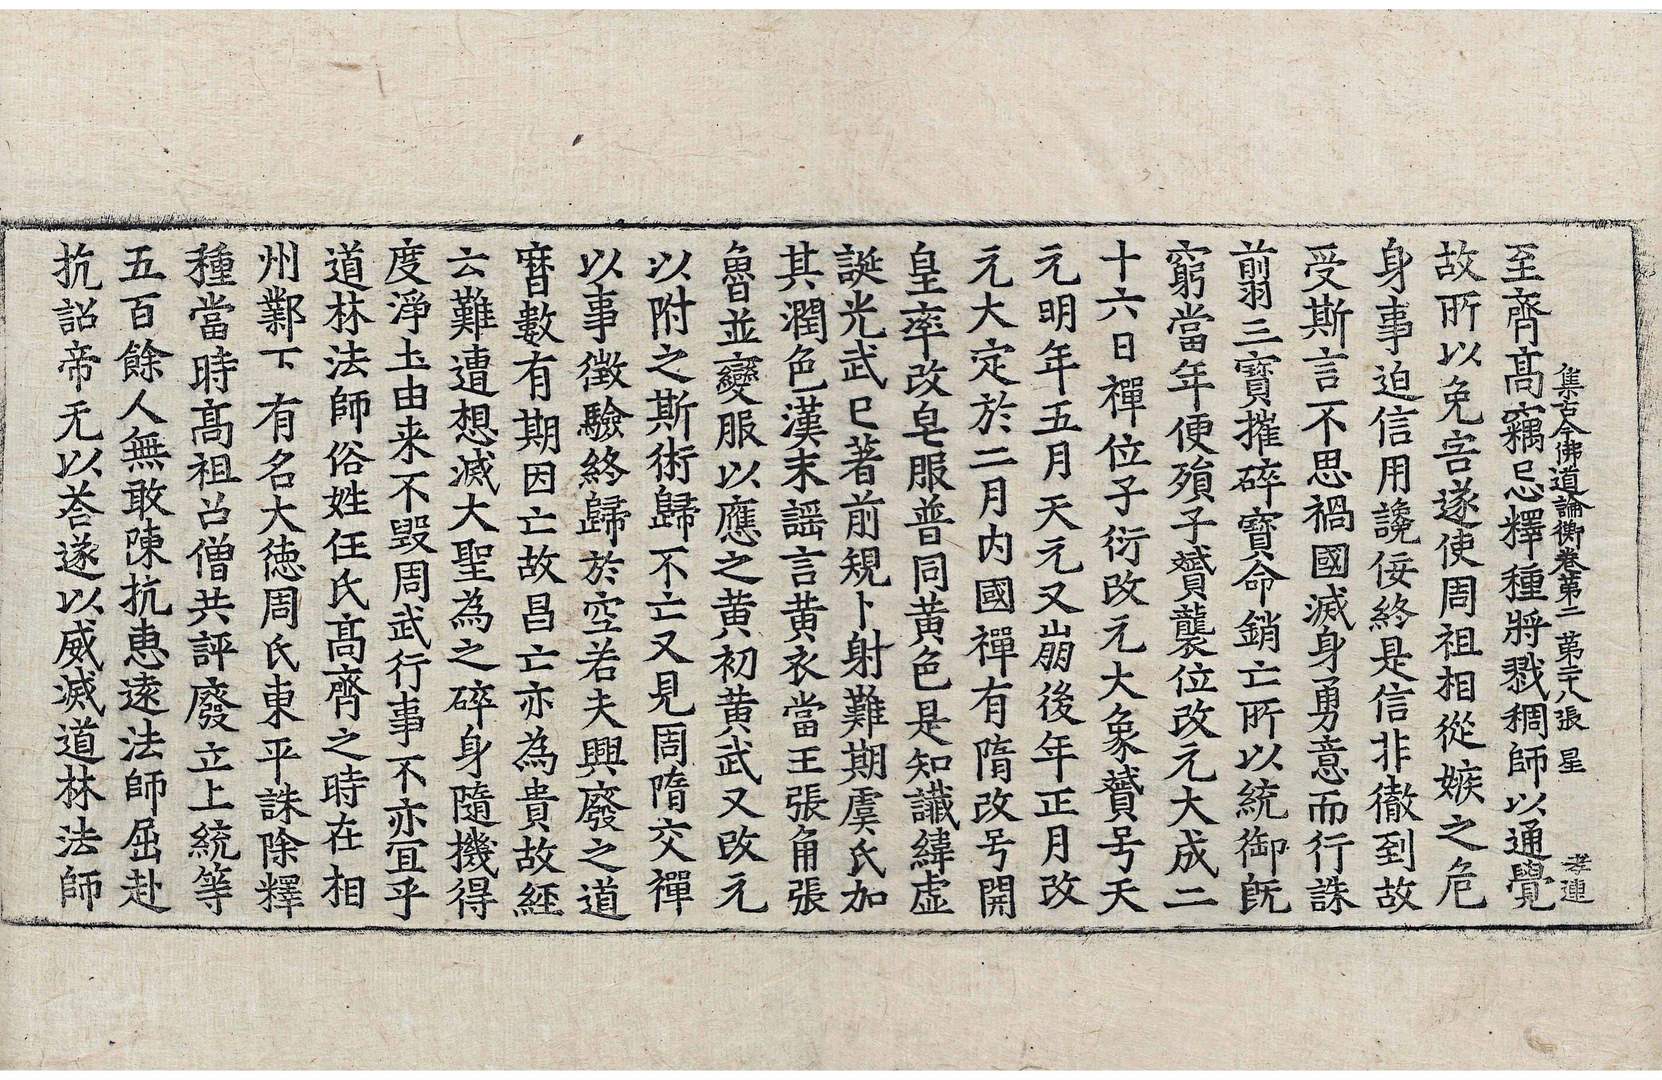 集古今佛道論衡卷第二 第二十八張 星 孝連
至齊髙竊忌釋種將戮稠師以通覺
故所以免害遂使周祖相從嫉之危
身事迫信用讒佞終是信非徹到故
受斯言不思禍國滅身勇意而行誅
翦三寶摧碎寶命銷亡所以統御旣
窮當年便殞子贇襲位改元大成二
十六日禪位子衍改元大象贇号天
元明年五月天元又崩後年正月改
元大定於二月内國禪有隋改号開
皇率改皂服普同黄色是知讖緯虛
誕光武已著前規卜射難期虞氏加
其潤色漢末謡言黄衣當王張角張
魯並變服以應之黄初黄武又改元
以附之斯術歸不亡又見周隋交禪
以事徵驗終歸於空若夫興廢之道
暦數有期因亡故昌亡亦為貴故経
云難遭想滅大聖為之碎身隨機得
度淨土由来不毁周武行事不亦冝乎
道林法師俗姓任氏髙齊之時在相
州鄴下有名大徳周氏東平誅除釋
種當時髙祖召僧共評廢立上統等
五百餘人無敢陳抗惠遠法師屈赴
抗詔帝无以荅遂以威滅道林法師